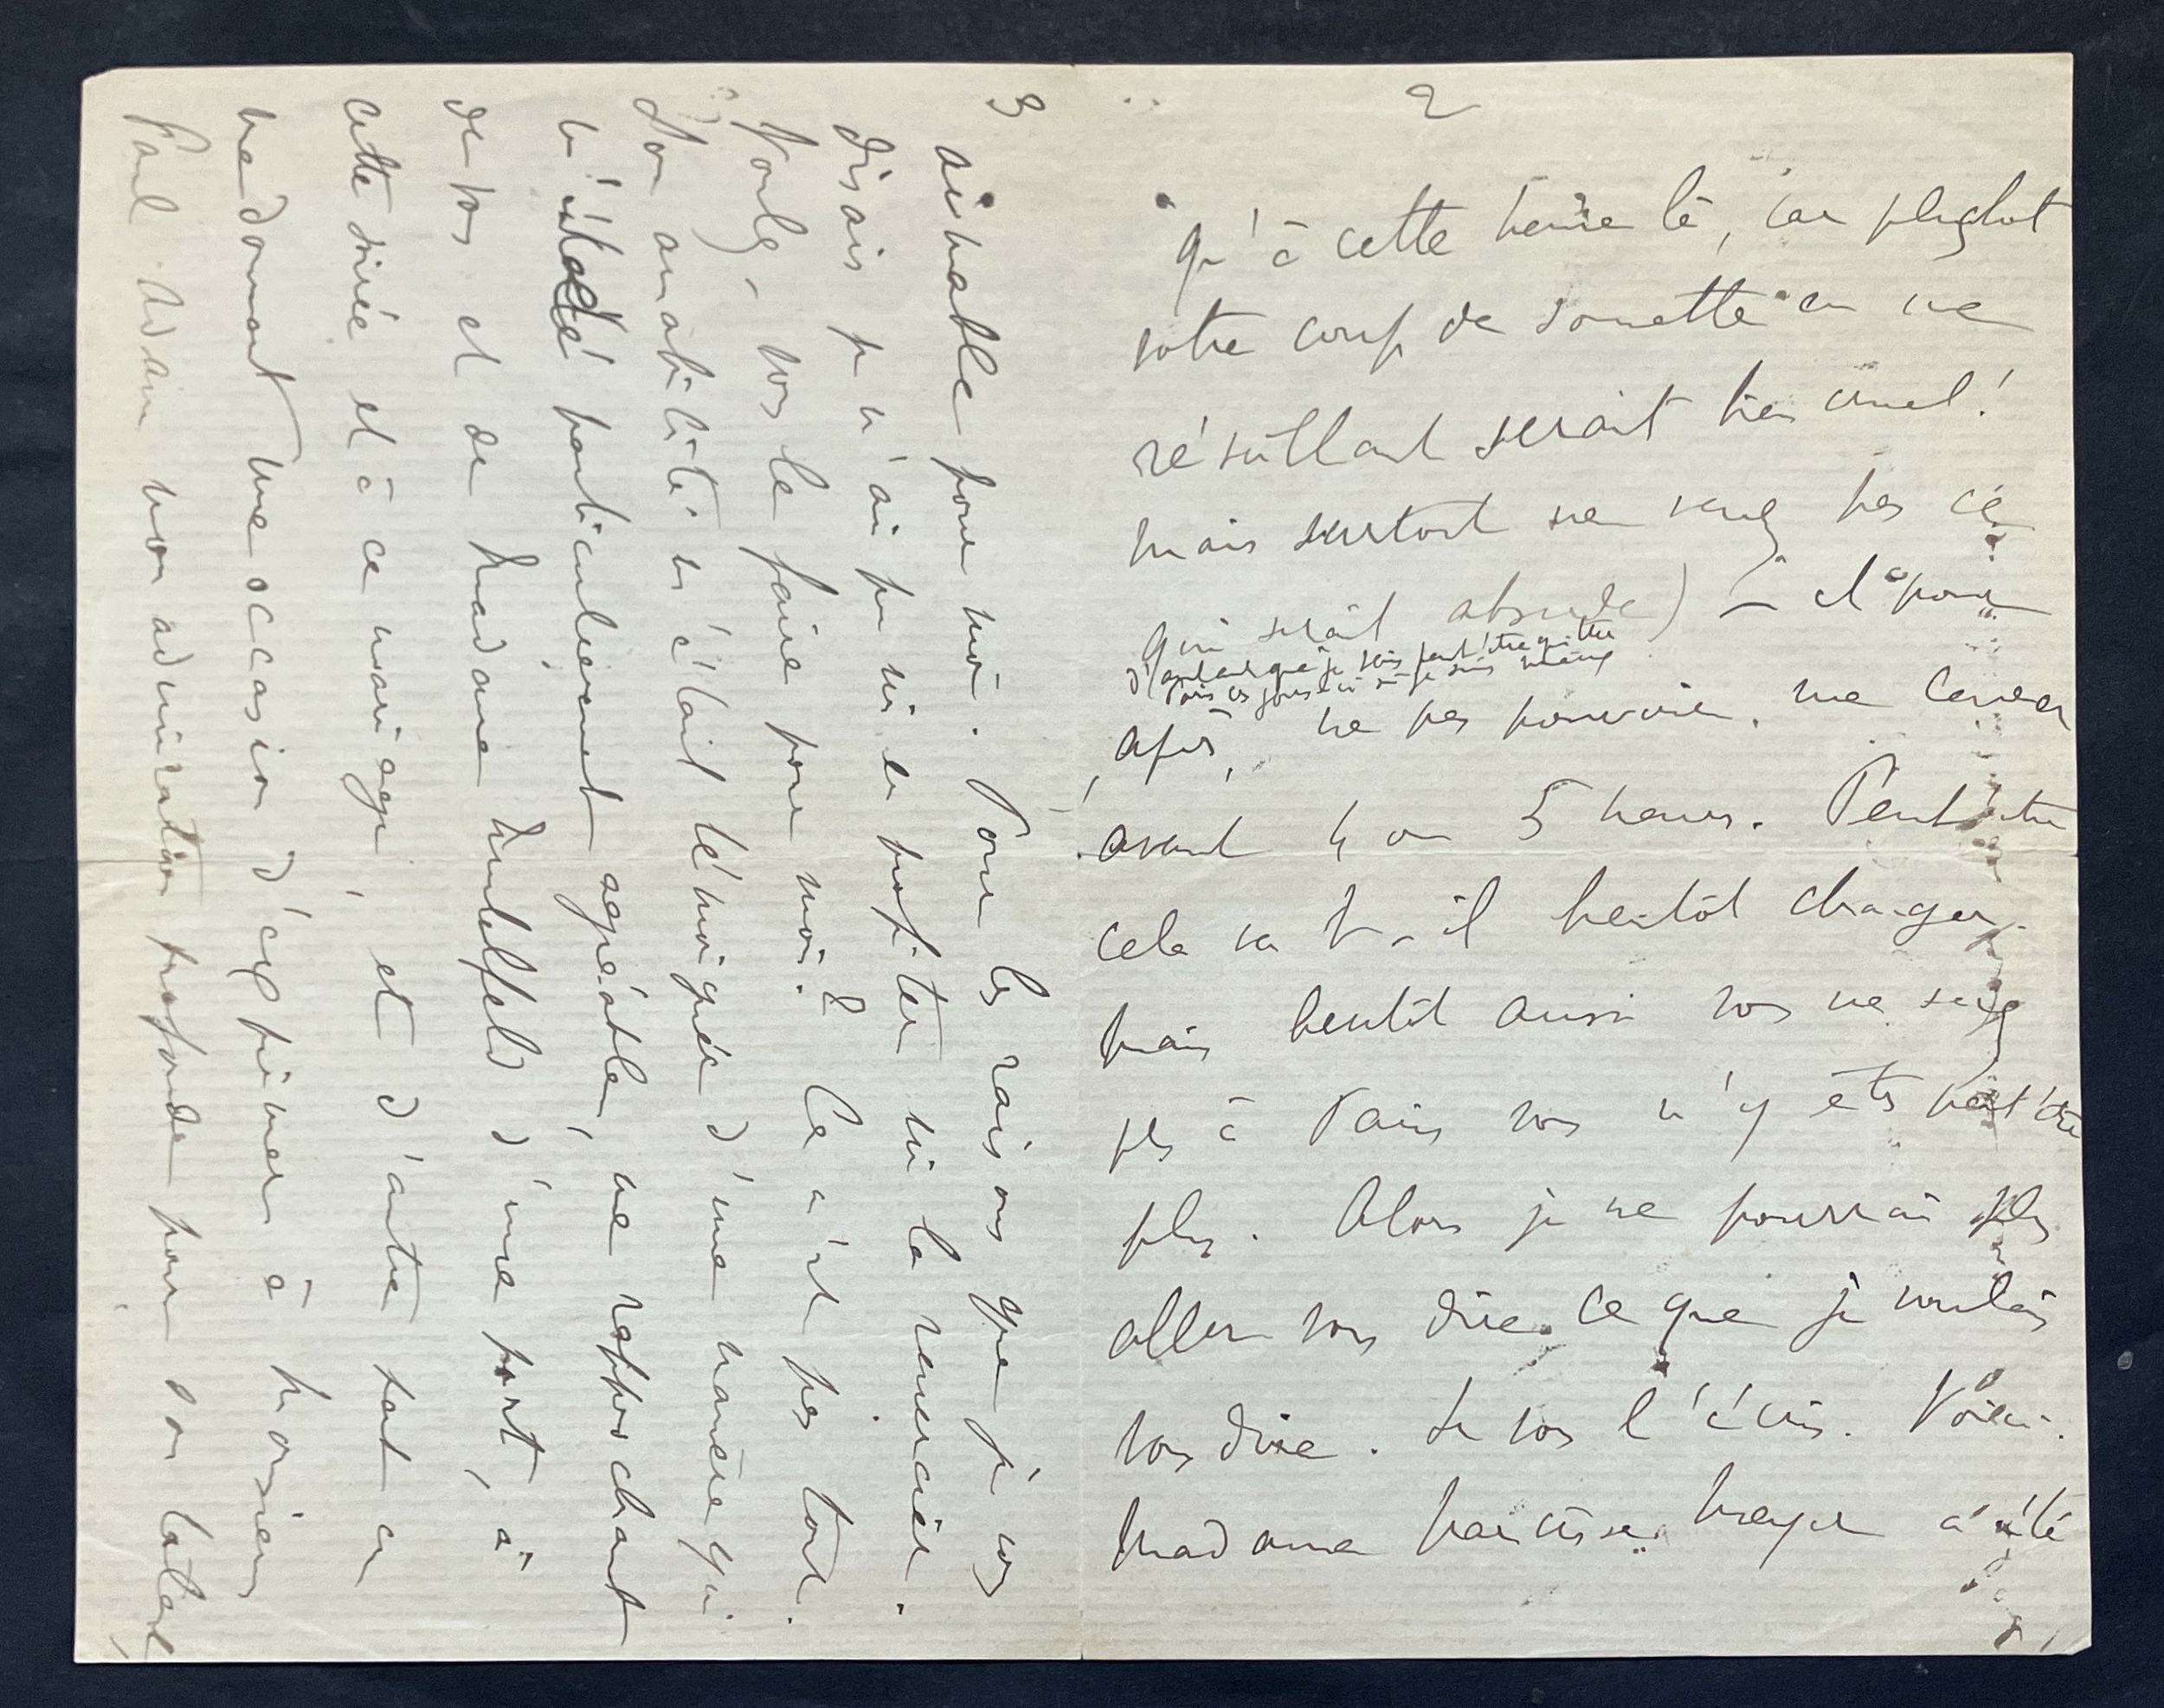 2
qu'à cette heure là, car plustot
votre coup de sonnette en me
réveillant serait bien cruel!
mais surtout ne venez pas ce
qui serait absurde) — et pour
d'autant que je vais peut'être quitter
Paris ces jours-ci si je suis mieux
après, ne pas pouvoir me lever
avant 4 ou 5 heures. Peut'être
cela va t-il bientôt changer
mais bientôt aussi vous ne serez
plus à Paris vous n'y êtes peut'être
plus. Alors je ne pourrai plus
aller vous dire ce que je voulais
vous dire. Je vous l'écris. Voici.
Madame francisse a été
3
aimable pour moi. Pour les raisons que je vous
disais je n'ai pu ni en profiter ni la remercier.
Voulez-vous le faire pour moi? Ce n'est pas tout.
Son amabilité s'était témoignée d'une manière qui
m'était particulièrement agréable, me rapprochant
de vous et de Madame Muhlfeld d'une part, à
cette soirée et à ce mariage, et d'autre part en
me donnant une occasion d'exprimer à Monsieur
Paul Adam mon admiration profonde pour son talent,